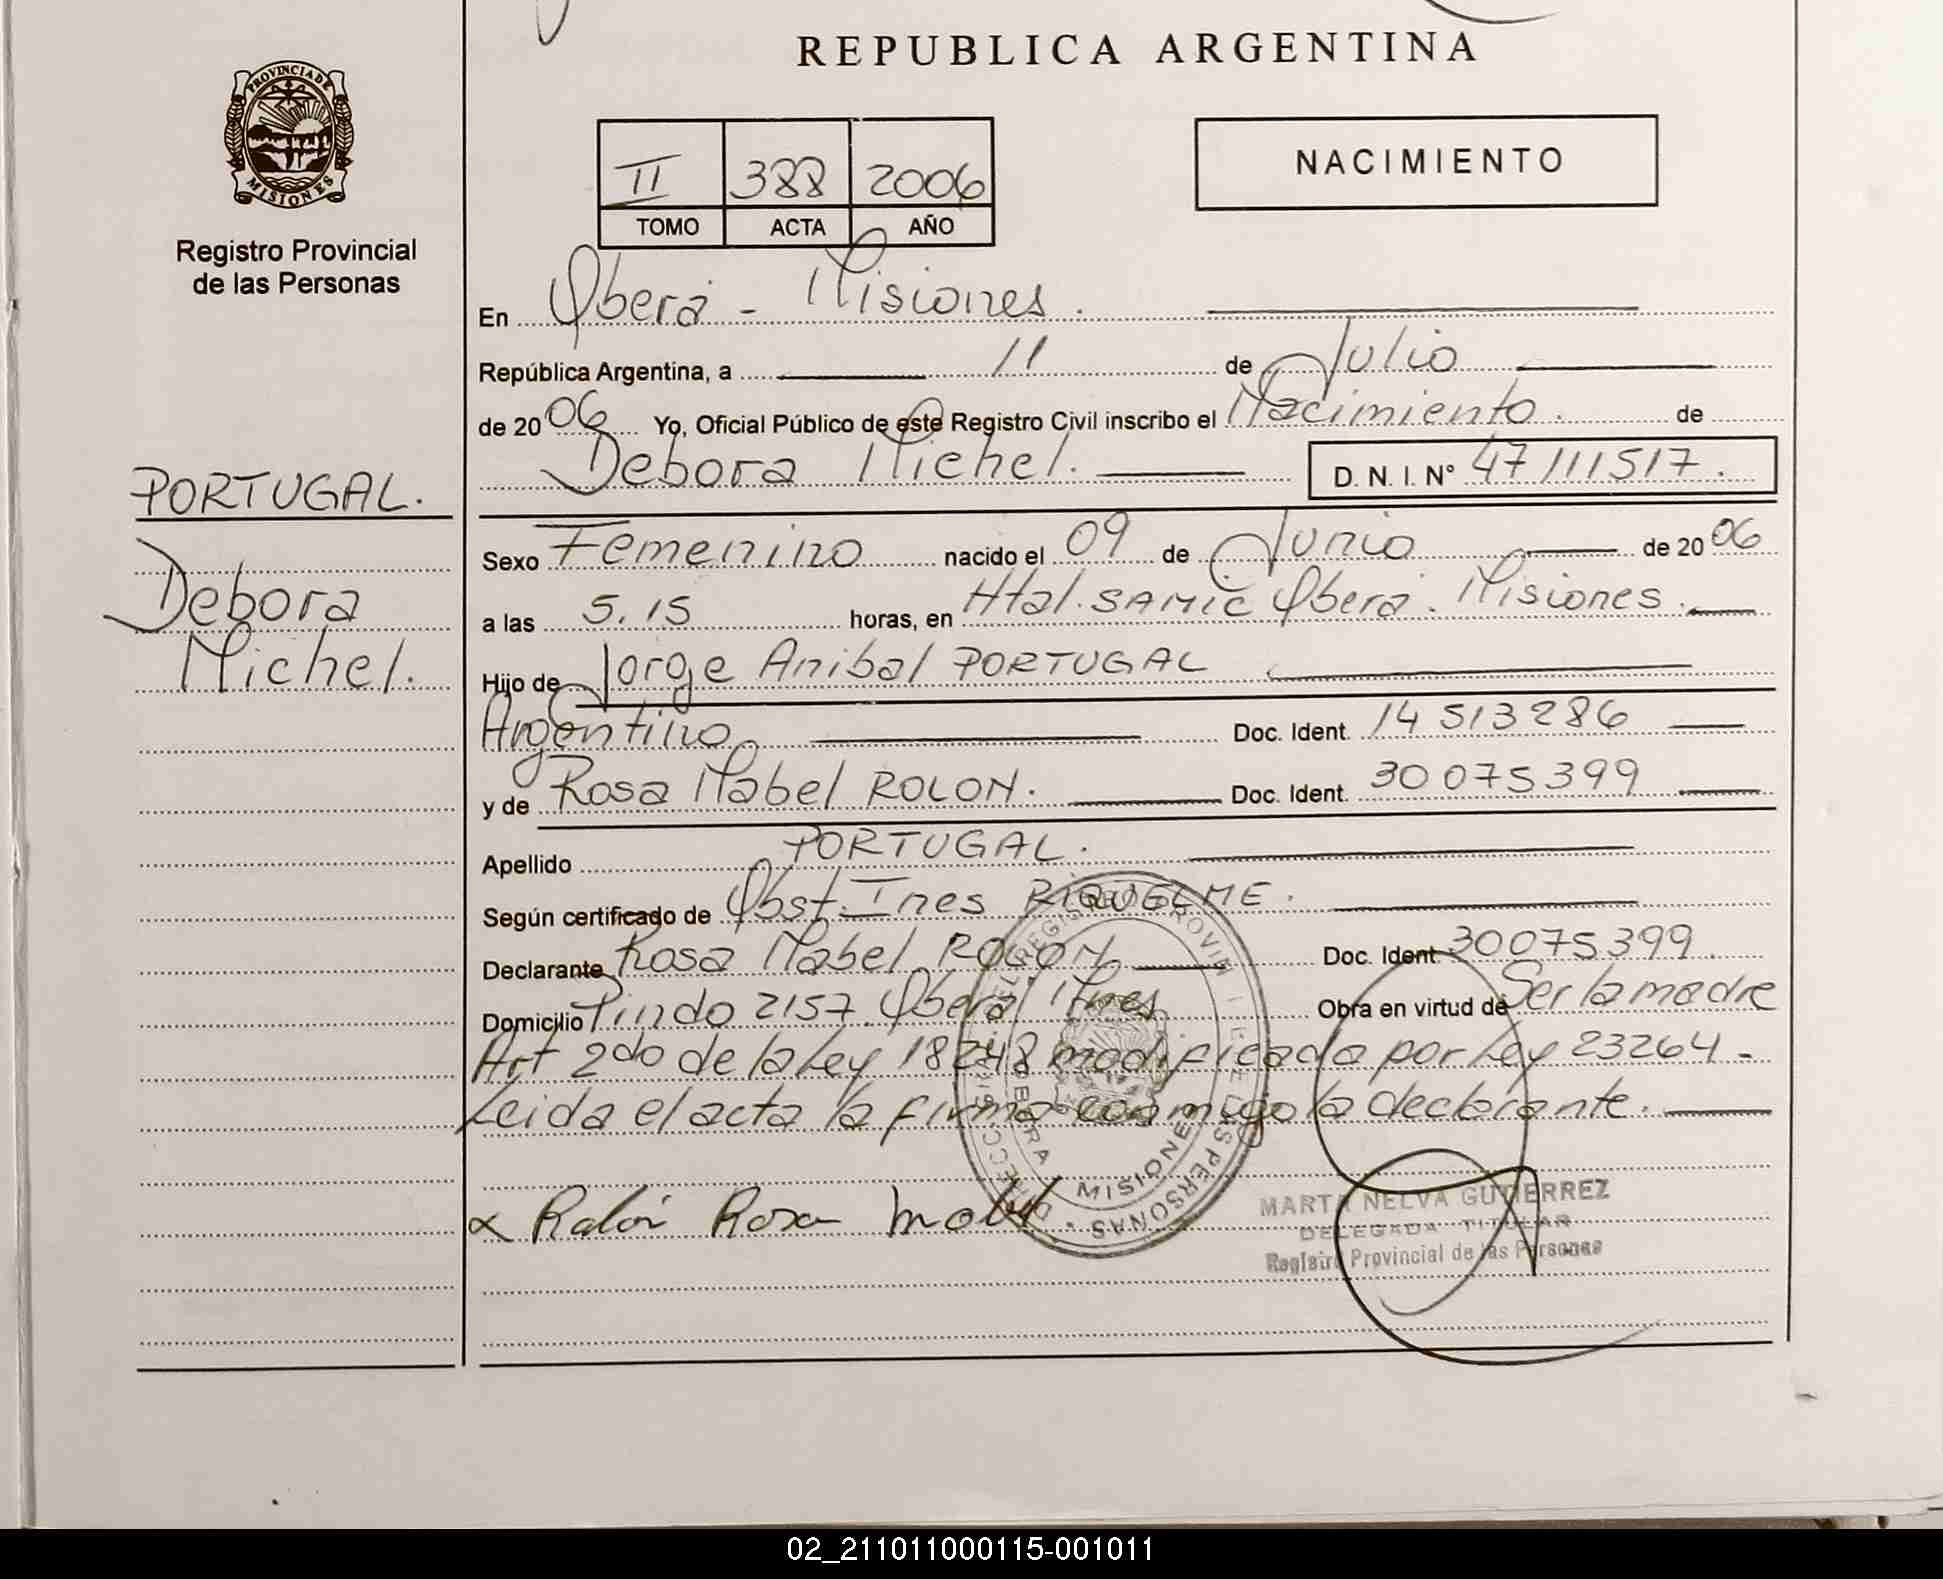 REPUBLICA ARGENTINA
PROVINCIA DE
MISIONES
Registro Provincial
de las Personas
II 388 2006
TOMO ACTA AÑO
NACIMIENTO
En Oberá - Misiones.
República Argentina, a 11 de Julio
de 2006 Yo, Oficial Público de este Registro Civil inscribo el Nacimiento. de
Debora Michel. D. N. I. N° 47111517.
PORTUGAL.
Debora
Michel.
Sexo Femenino nacido el 09 de Junio de 2006
a las 5.15 horas, en Htal. SAMIC Oberá. Misiones.
Hijo de Jorge Anibal PORTUGAL
Argentino Doc. Ident. 14513286
y de Rosa Mabel ROLON. Doc. Ident. 30075399
Apellido PORTUGAL.
Según certificado de Obst. Ines RIQUELME.
Declarante Rosa Mabel ROLON Doc. Ident. 30075399.
Domicilio Pindo 2157. Oberá Mnes Obra en virtud de Ser la madre
Art 2do de la Ley 18248 modificada por Ley 23264 -
Leida el acta la firma conmigo la declarante.
x Rolón Rosa Mabel
MISIONES
MARTA NELVA GUTIERREZ
DELEGADA TITULAR
Registro Provincial de las Personas
02_211011000115-001011